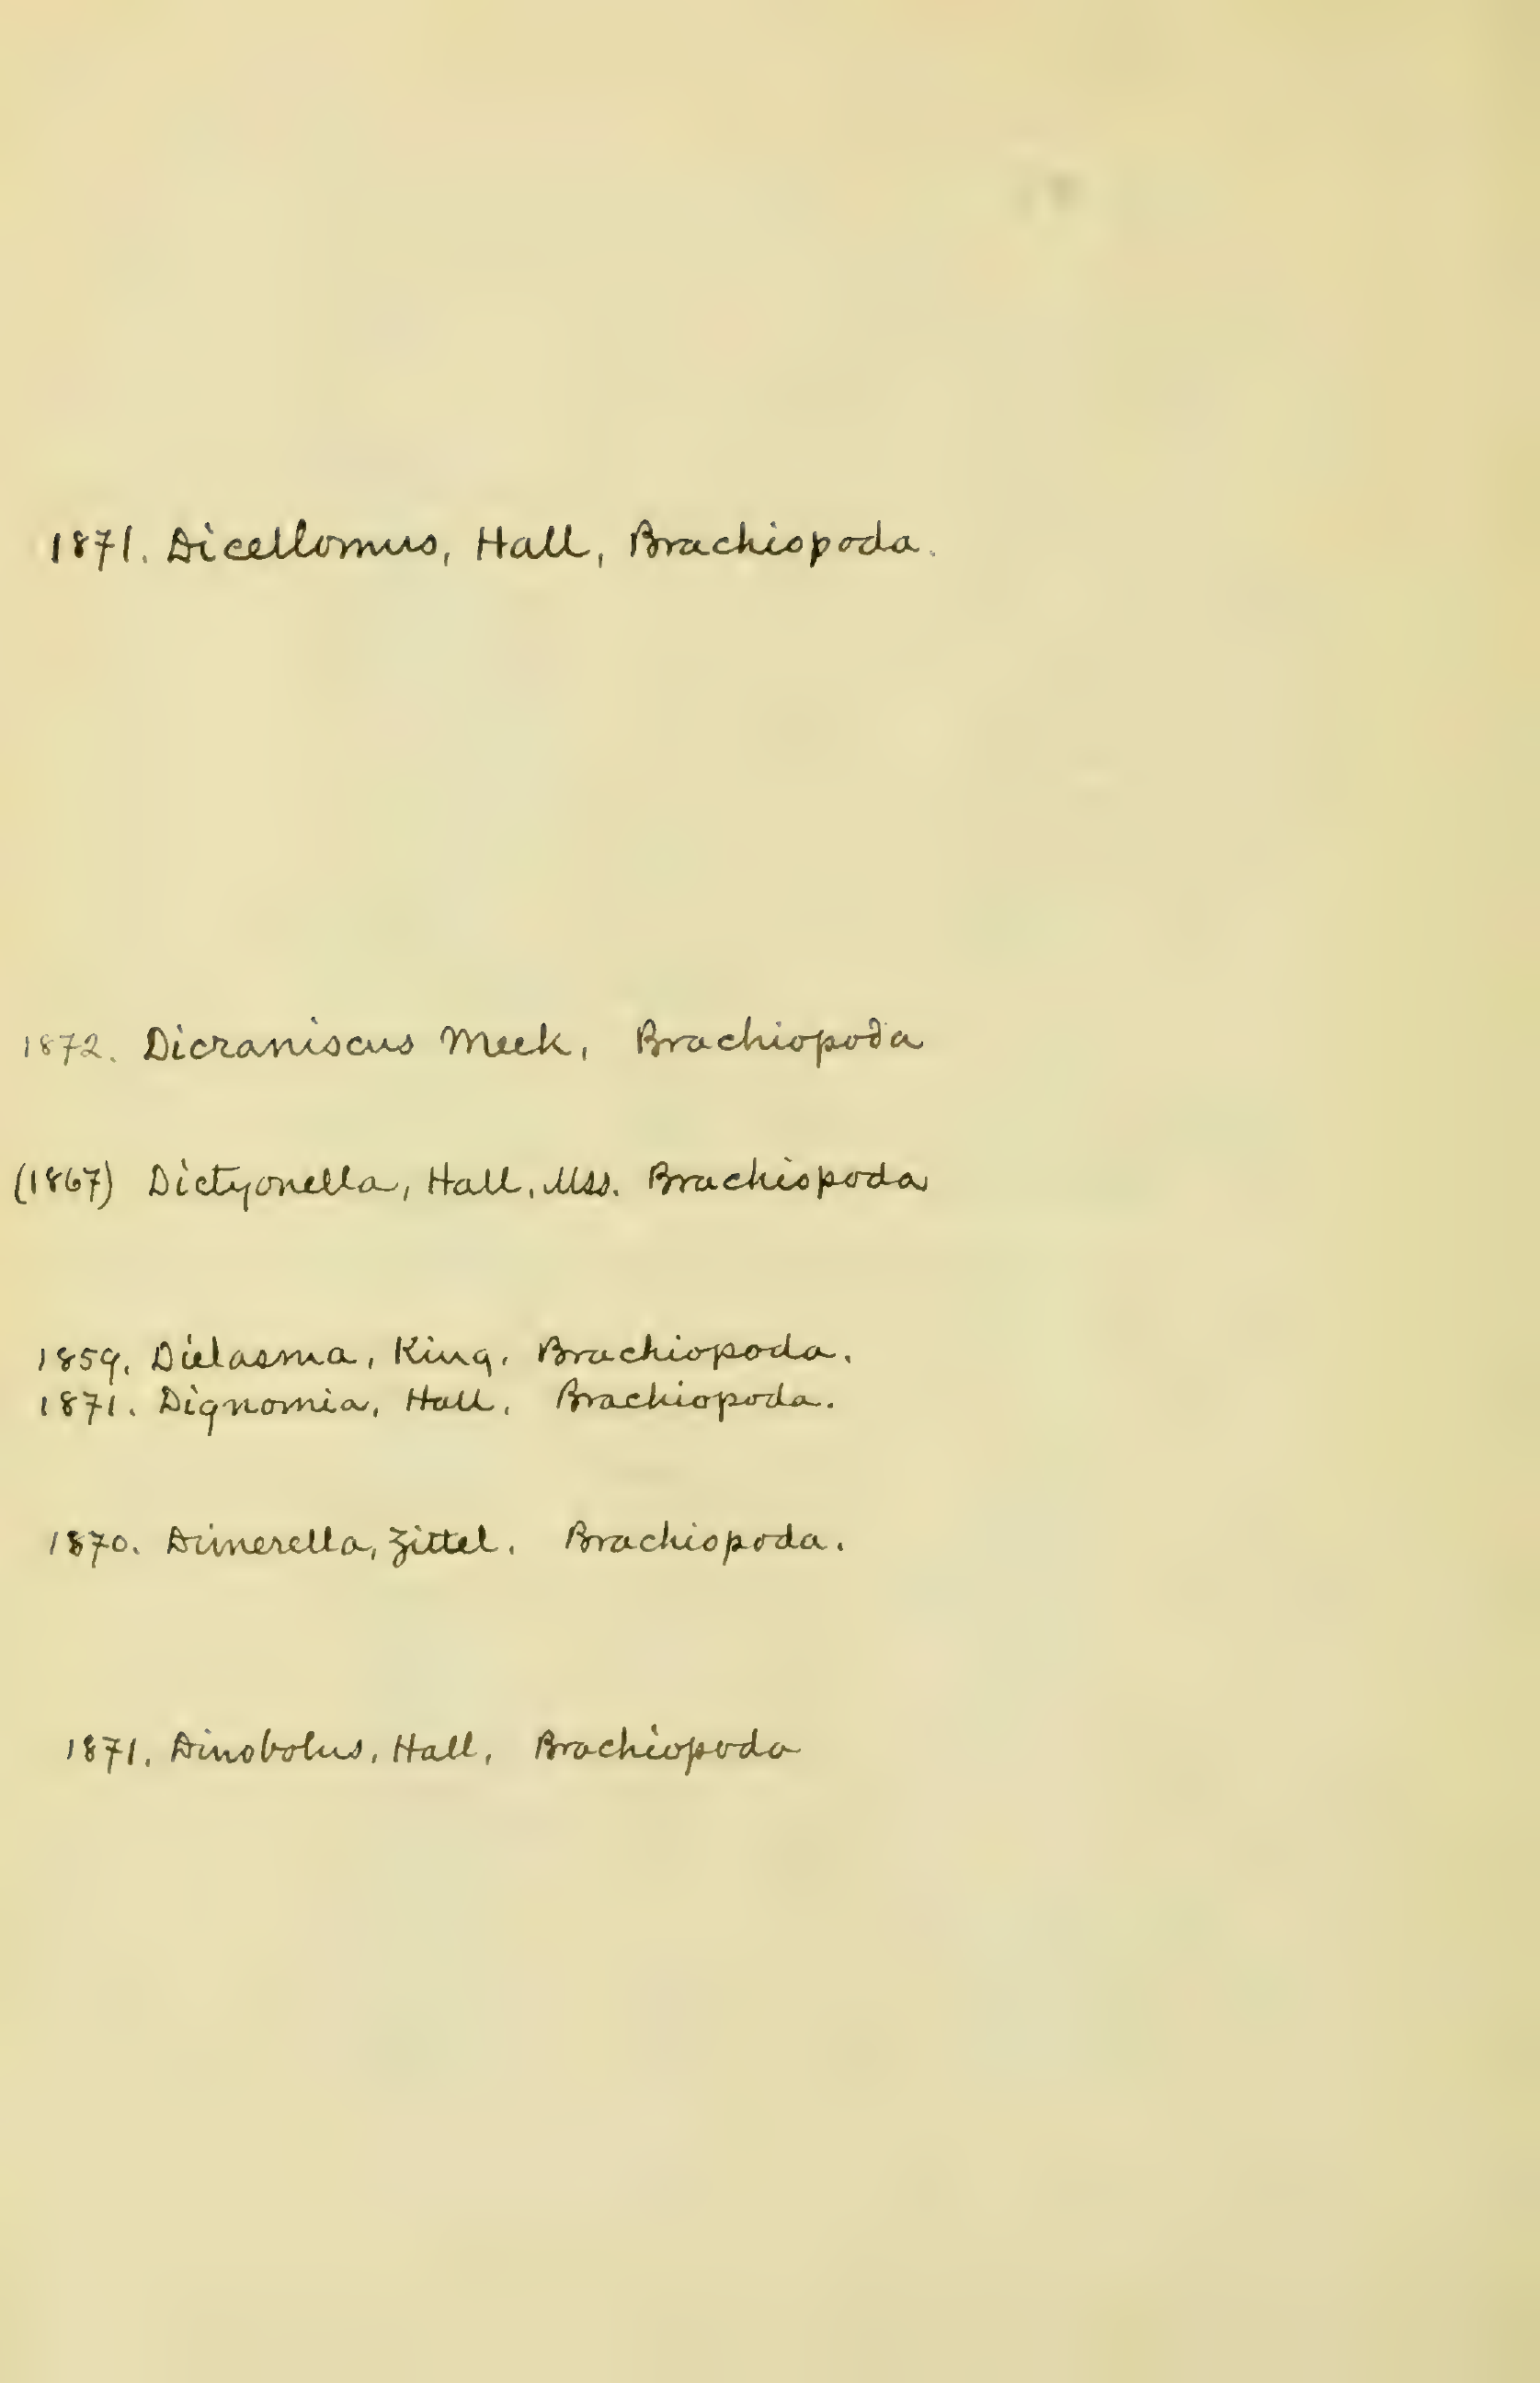 1871. Dicellomus, Hall, Brachiopoda.
1872. Dicraniscus Meek, Brachiopoda
(1867) Dictyonella, Hall, Mss. Brachiopoda
1859. Dielasma, King. Brachiopoda.
1871. Dignomia, Hall. Brachiopoda.
1870. Dimerella, Zittel. Brachiopoda.
1871. Dinobolus, Hall, Brachiopoda